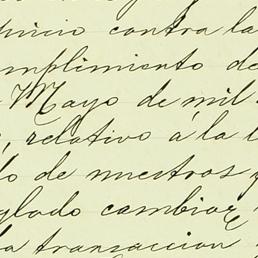 juicio contra la
mplimiento de
Mayo de mil
relativo á la
lo de nuestros
glado cambiar
la transaccion